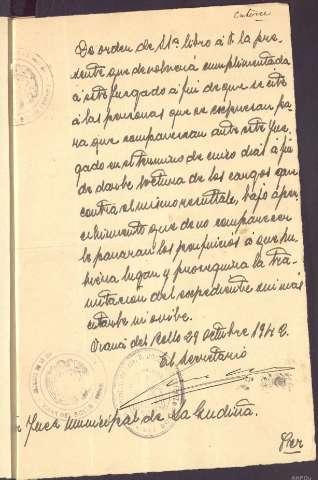 De orden de Sª. libro a V. la pre-
sente que devolverá cumplimentada
a este Juzgado a fin de que se cite
a las personas que se expresan pa
ra que comparezcan ante este Juz
gado en el termino de cinco dias a fin
de darle lectura de los cargos que
contra el mismo resultale, bajo aper
cibimiento que de no comparecer
le pararan los perjuicios a que hu
biera lugar y proseguira la tra
mitacion del expediente sin mas
citarle ni oirle.
del Bollo 29 Octubre 194
El Secretario
Juez Municipal de La Gudiña.